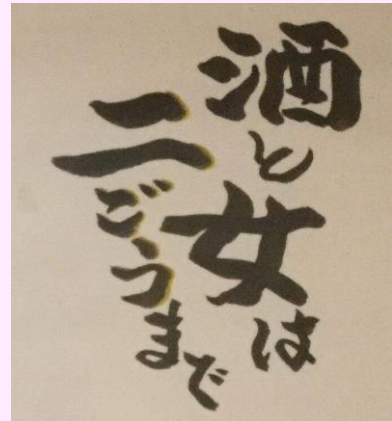 酒と女は
二ごうまで